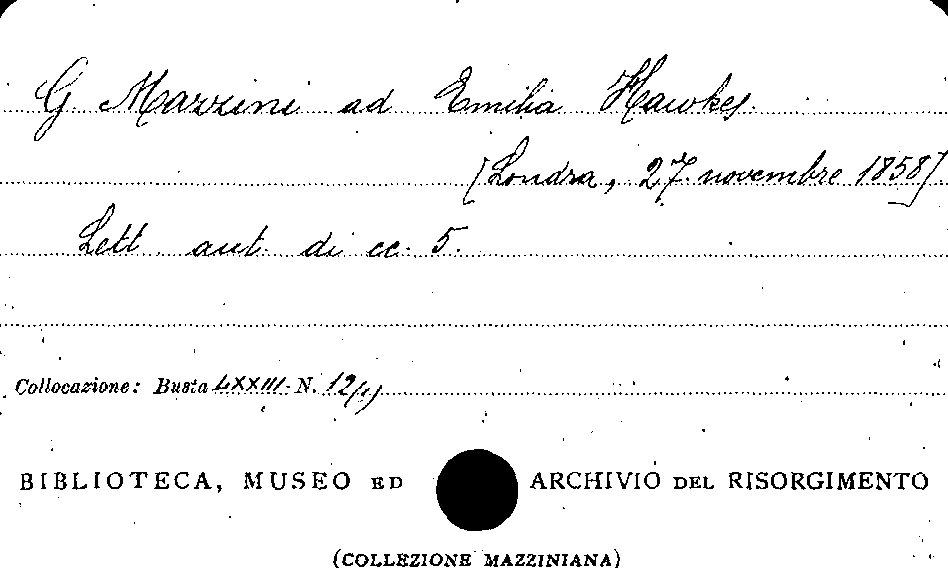 G. Mazzini ad Emilia Hawkes.
[Londra, 27 novembre 1858]
Lett. aut. di cc. 5.
Collocazione: Busta LXXIII N. 12(4)
BIBLIOTECA, MUSEO ED ARCHIVIO DEL RISORGIMENTO
(COLLEZIONE MAZZINIANA)